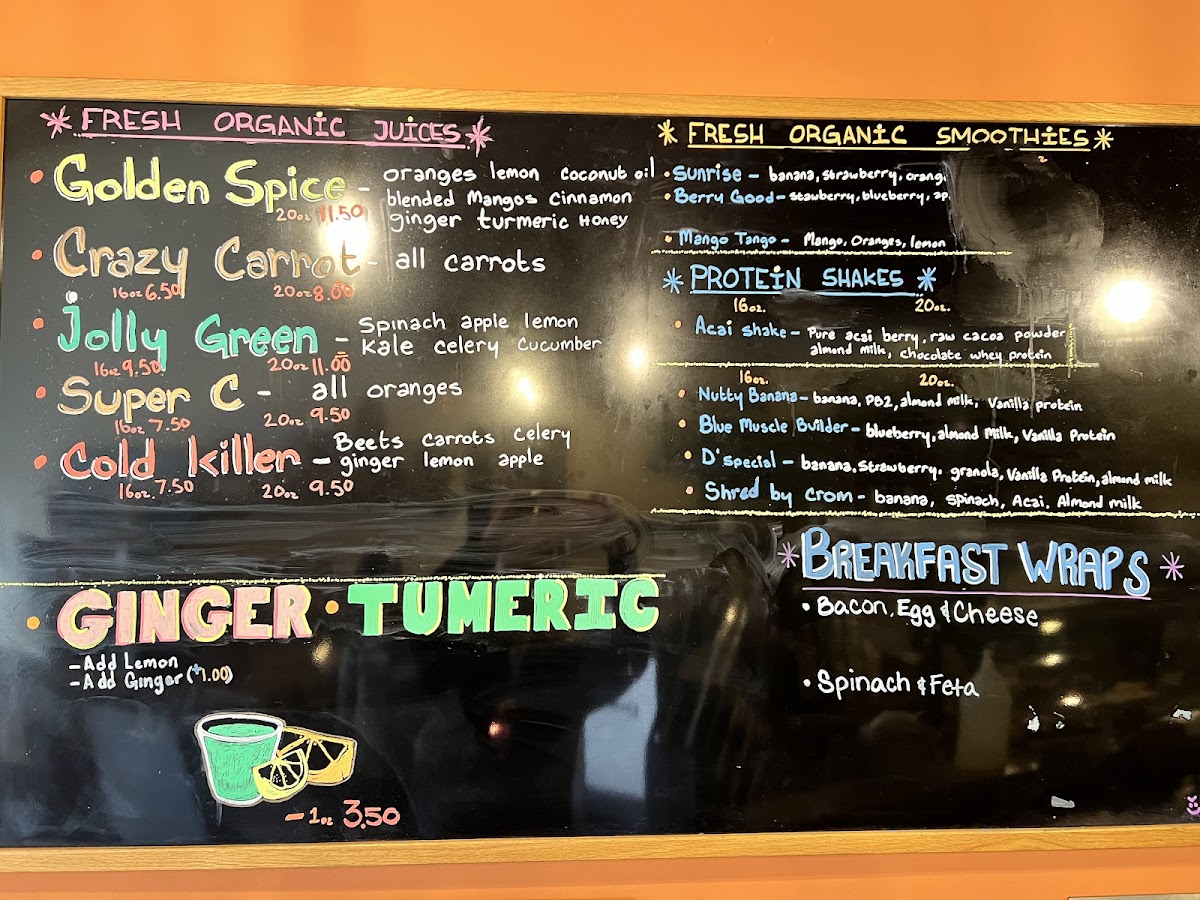 * FRESH ORGANIC JUICES *
• Golden Spice - oranges lemon coconut oil
blended Mangos cinnamon
20oz 11.50 ginger turmeric Honey
• Crazy Carrot - all carrots
16oz 6.50 20oz 8.00
• Jolly Green - Spinach apple lemon
Kale celery cucumber
16oz 9.50 20oz 11.00
• Super C - all oranges
16oz 7.50 20oz 9.50
• Cold killer - Beets Carrots Celery
ginger lemon apple
16oz 7.50 20oz 9.50
• GINGER • TUMERIC
- Add Lemon
- Add Ginger (+1.00)
- 1oz 3.50
* FRESH ORGANIC SMOOTHIES *
• Sunrise - banana, strawberry, orang
• Berry Good - stawberry, blueberry, ap
• Mango Tango - Mango, Oranges, lemon
* PROTEIN SHAKES *
16oz. 20oz.
• Acai shake - Pure acai berry, raw cacao powder
almond milk, chocolate whey protein
16oz. 20oz.
• Nutty Banana - banana, PB2, almond milk, Vanilla protein
• Blue Muscle Builder - blueberry, almond Milk, Vanilla Protein
• D'special - banana, strawberry, granola, Vanilla Protein, almond milk
• Shred by Crom - banana, spinach, Acai, Almond milk
* BREAKFAST WRAPS *
• Bacon, Egg & Cheese
• Spinach & Feta